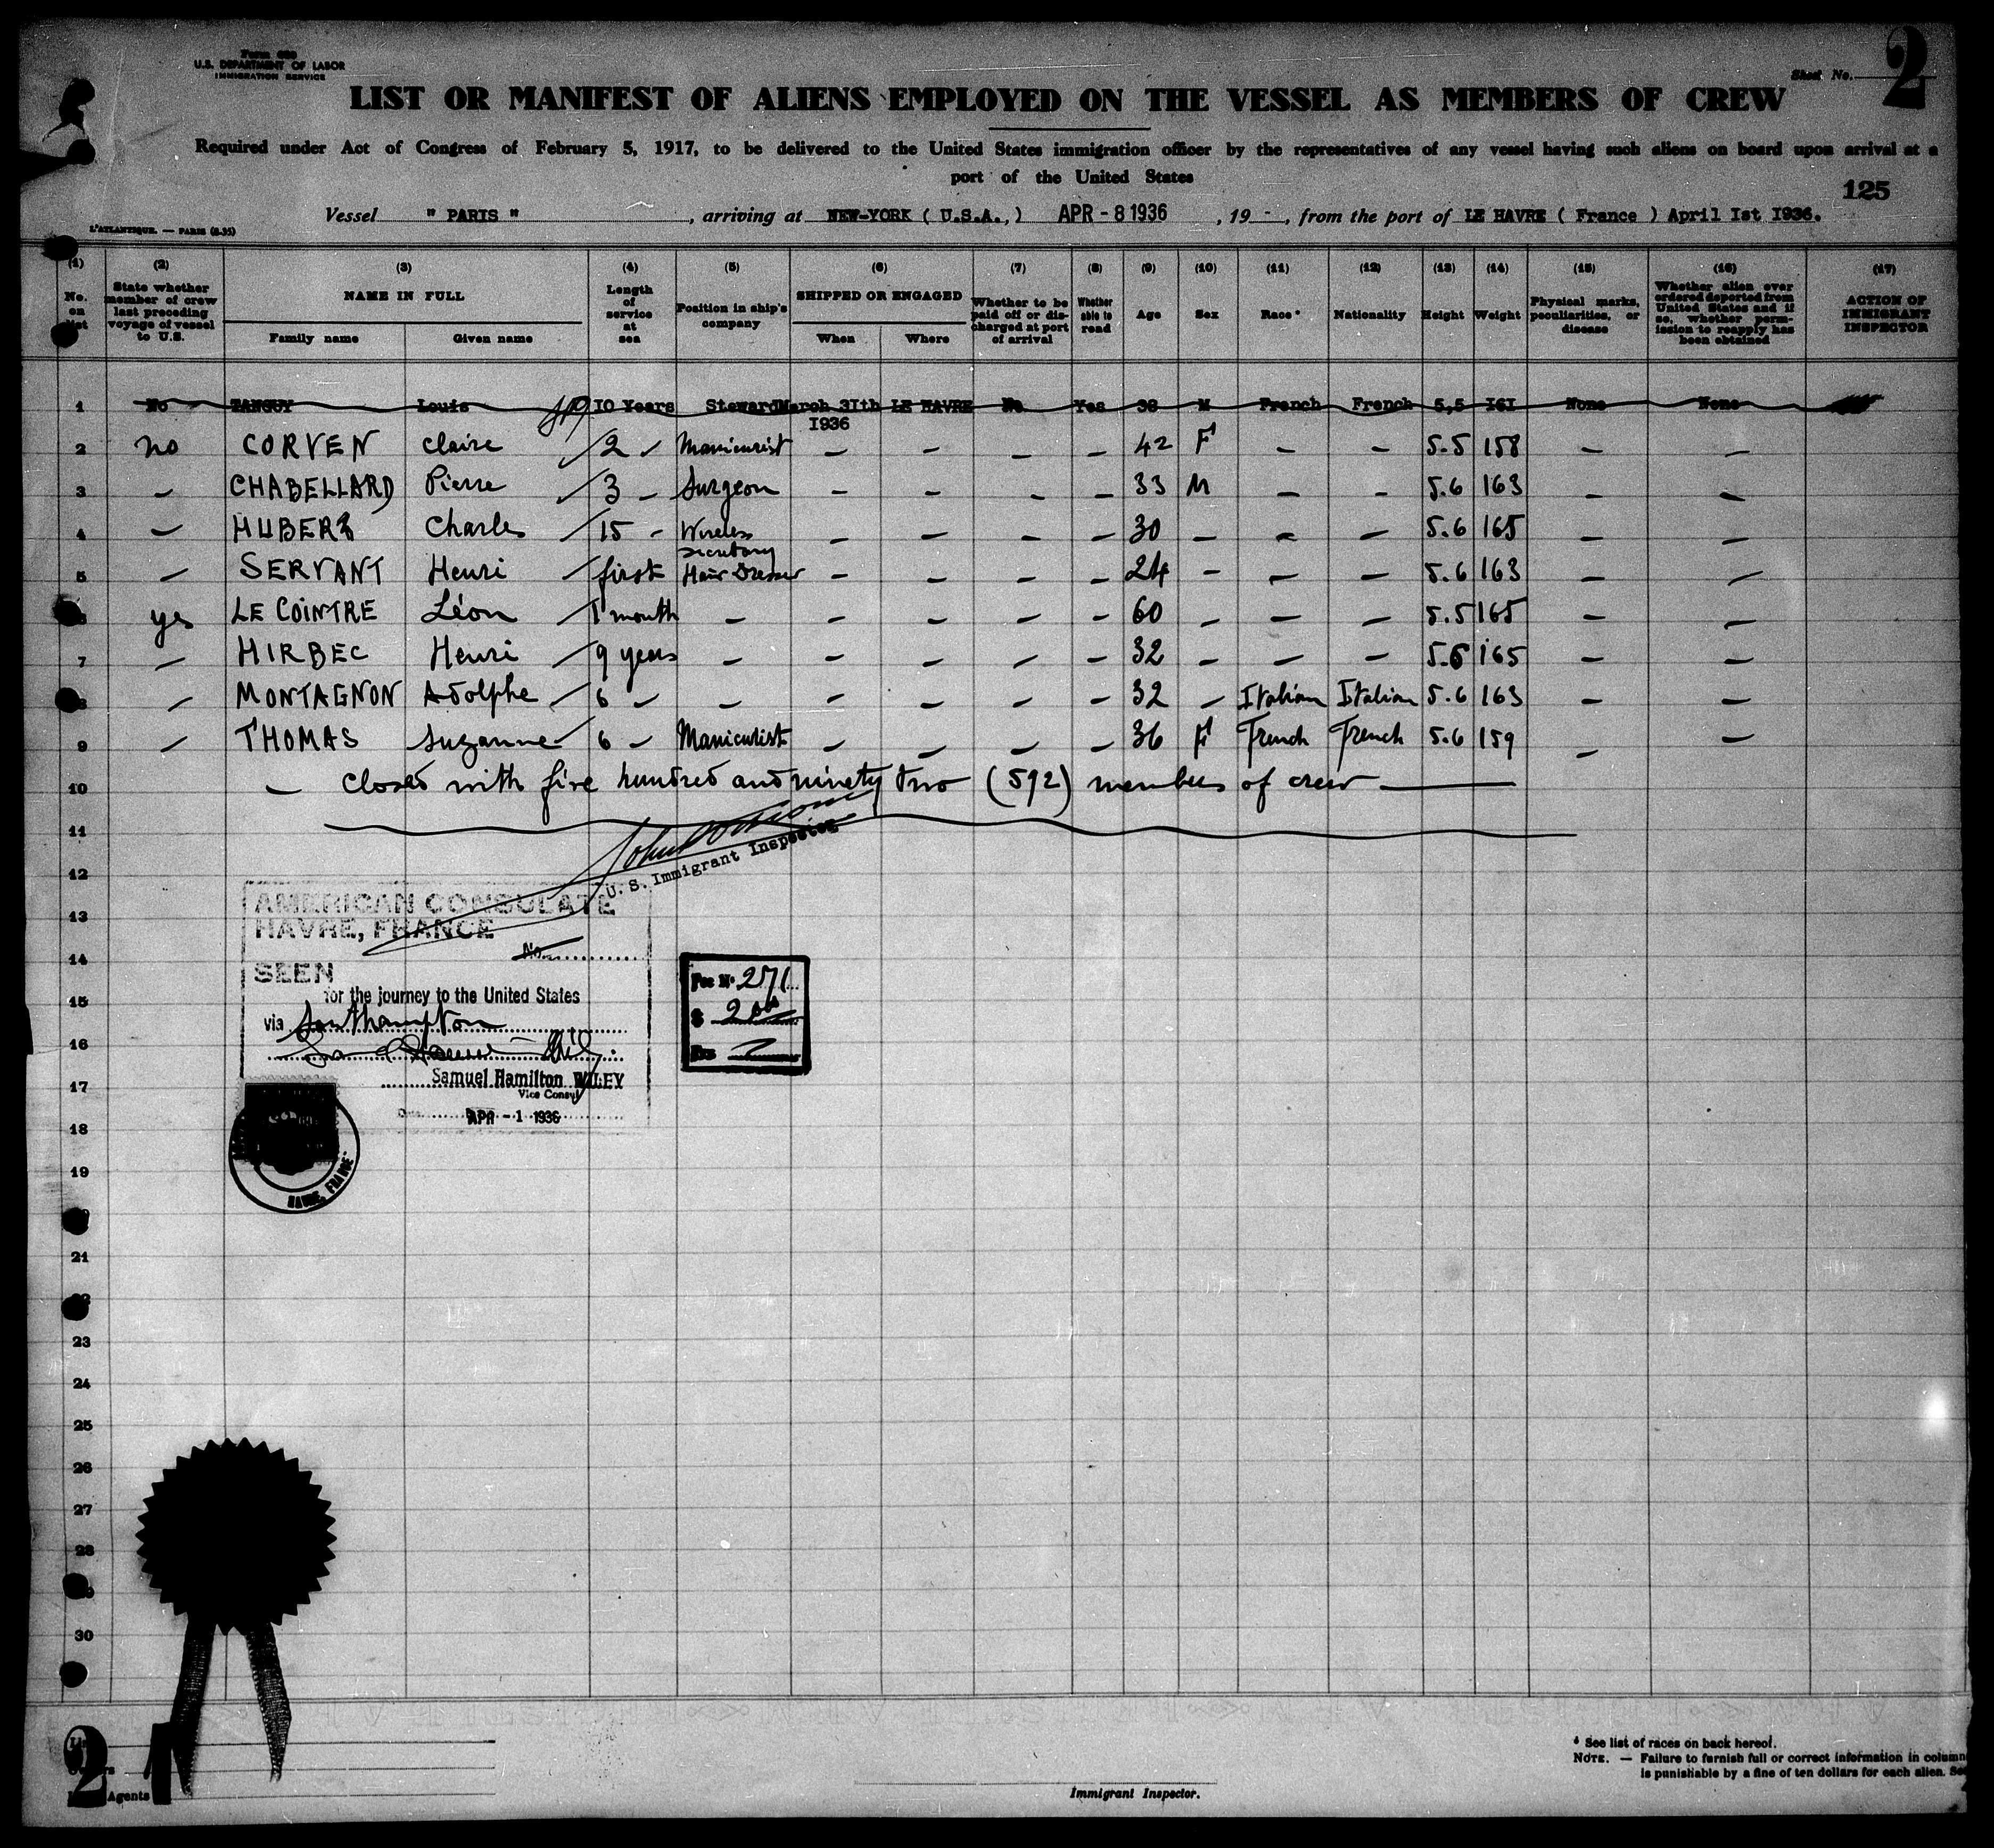 Form 680
U.S. DEPARTMENT OF LABOR
IMMIGRATION SERVICE
Sheet No. 2
LIST OR MANIFEST OF ALIENS EMPLOYED ON THE VESSEL AS MEMBERS OF CREW
Required under Act of Congress of February 5, 1917, to be delivered to the United States immigration officer by the representatives of any vessel having such aliens on board upon arrival at a
port of the United States
125
Vessel " PARIS ", arriving at NEW-YORK ( U.S.A., ) APR - 8 1936, 19 -, from the port of LE HAVRE ( France ) April Ist I936.
L'ATLANTIQUE. — PARIS (8-35)
(1) (2) (3) (4) (5) (6) (7) (8) (9) (10) (11) (12) (13) (14) (15) (16) (17)
No. on list
State whether member of crew last preceding voyage of vessel to U.S.
NAME IN FULL
Family name Given name
Length of service at sea
Position in ship's company
SHIPPED OR ENGAGED
When Where
Whether to be paid off or discharged at port of arrival
Whether able to read
Age
Sex
Race *
Nationality
Height
Weight
Physical marks, peculiarities, or disease
Whether alien ever ordered deported from United States and if so, whether permission to reapply has been obtained
ACTION OF IMMIGRANT INSPECTOR
1 No TANGUY Louis IO Years Steward March 3Ith I936 LE HAVRE No Yes 38 M French French 5,5 I6I None None
2 no CORVEN Claire 2 - Manicurist - - - - 42 F - - 5.5 158 - -
3 - CHABELLARD Pierre 3 - Surgeon - - - - 33 M - - 5.6 163 - -
4 - HUBERT Charles 15 - Wireless secretary - - - - 30 - - - 5.6 165 - -
5 - SERVANT Henri first Hair Dresser - - - - 24 - - - 5.6 163 - -
6 yes LE COINTRE Léon 1 month - - - - - 60 - - - 5.5 165 - -
7 - HIRBEC Henri 9 years - - - - - 32 - - - 5.6 165 - -
8 - MONTAGNON Adolphe 6 - - - - - - 32 - Italian Italian 5.6 163 - -
9 - THOMAS Suzanne 6 - Manicurist - - - - 36 F French French 5.6 159 - -
10 - Closed with five hundred and ninety two (592) members of crew
11
12
U. S. Immigrant Inspector
13
AMERICAN CONSULATE
HAVRE, FRANCE
No.
14
SEEN
for the journey to the United States
15
via Southampton
16
Samuel Hamilton WILEY
17
Vice Consul
Date APR - 1 1936
HAVRE, FRANCE
Fee No. 271
$ 2.00
18
19
21
23
24
25
26
27
28
30
2
Agents
* See list of races on back hereof.
NOTE. — Failure to furnish full or correct information in column
is punishable by a fine of ten dollars for each alien.
Immigrant Inspector.